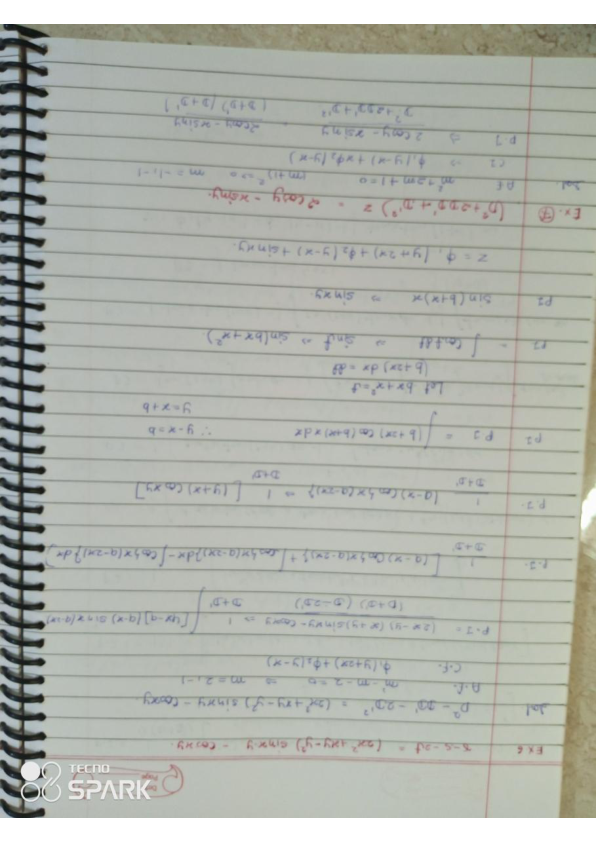 Ex 6 r-s-2t = (2x²+xy-y²) sinxy - cosxy.
Sol D²-DD'-2D'² = (2x²+xy-y²) sinxy - cosxy
A.E. m²-m-2=0 ⇒ m=2,-1
C.F. φ₁(y+2x)+φ₂(y-x)
P.I = (2x-y)(x+y)sinxy-cosxy / (D+D')(D-2D') ⇒ 1/(D+D') ∫
P.I. 1/(D+D') [(a-x) cos{x(a-2x)} + ∫cos{x(a-2x)}dx - ∫cos{x(a-2x)}dx]
P.I. 1/(D+D') (a-x) cos{x(a-2x)} ⇒ 1/(D+D') [(y+x) cosxy]
P.I = ∫(b+2x) cos(b+x)x dx ∵ y-x=b
y=x+b
Let bx+x²=t
(b+2x)dx=dt
P.I = ∫cost dt ⇒ sint ⇒ sin(bx+x²)
P.I sin(b+x)x ⇒ sinxy.
z = φ₁(y+2x)+φ₂(y-x)+sinxy.
Ex. 7 (D²+2DD'+D'²) z = 2cosy - xsiny.
Sol. A.E m²+2m+1=0 (m+1)²=0 m=-1,-1
C.F ⇒ φ₁(y-x)+xφ₂(y-x)
P.I ⇒ 2cosy-xsiny / D²+2DD'+D'² = 2cosy-xsiny / (D+D')(D+D')
TECNO
SPARK